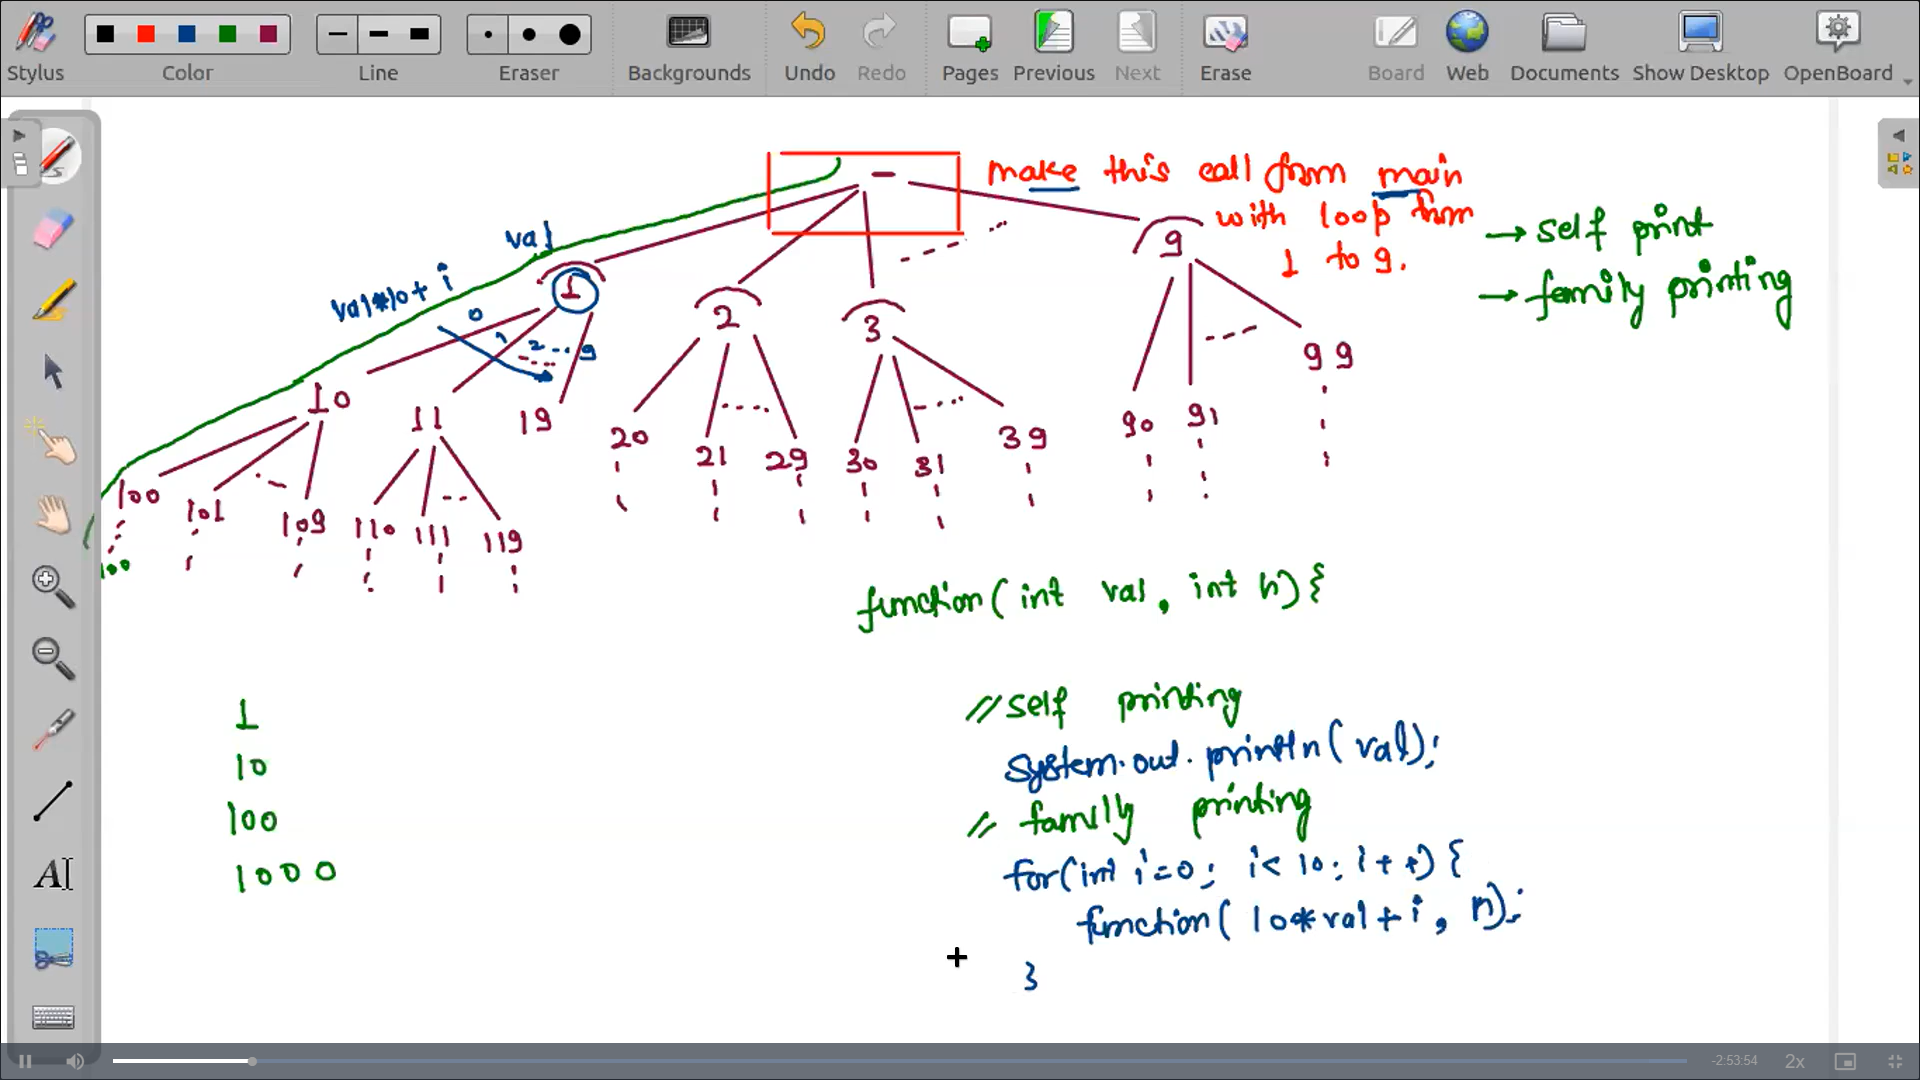 Stylus Color Line Eraser Backgrounds Undo Redo Pages Previous Next Erase Board Web Documents Show Desktop OpenBoard
make this call from main
with loop from
1 to 9.
→ self print
→ family printing
-
val
val*10+ i
1 2 3 9
0 1 2 .. 9
10 11 19 20 21 29 30 31 39 90 91 99
100 101 109 110 111 119
100
function( int val, int n) {
// self printing
system.out.println( val);
// family printing
for(int i=0; i< 10; i++) {
function( 10*val+i, n);
}
1
10
100
1000
-2:53:54 2x